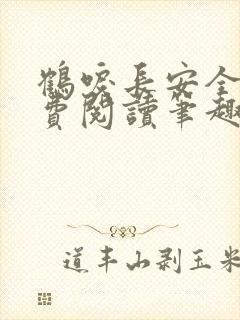 鶴唳長安全
費閱讀筆趣
道丰山剥玉米